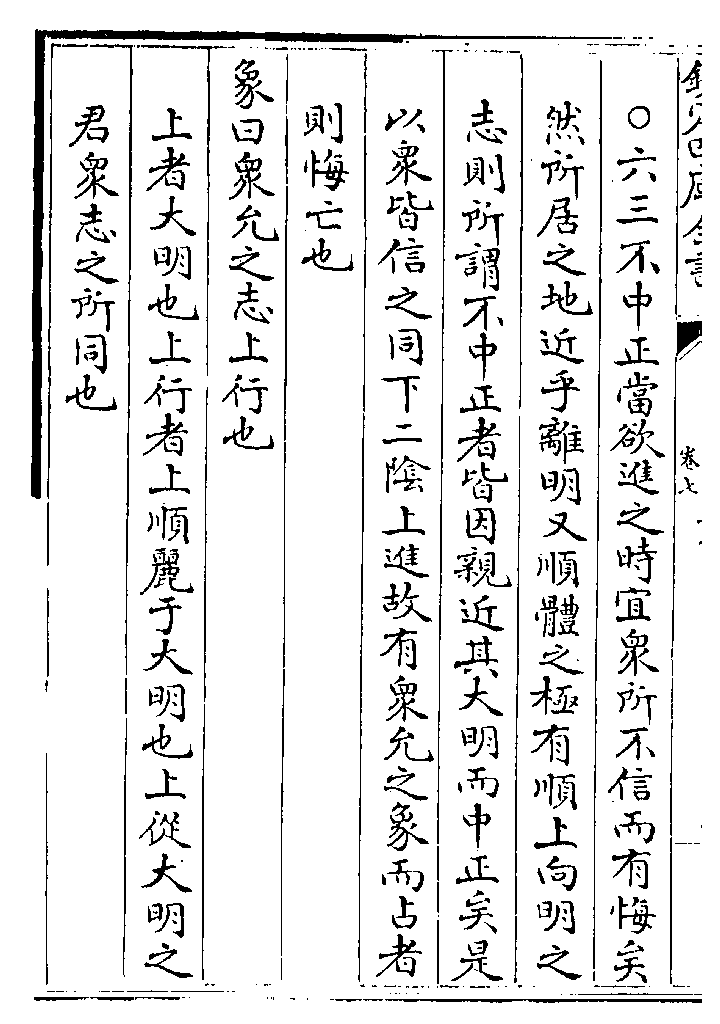 欽定四庫全書
卷七
○六三不中正當欲進之時宜衆所不信而有悔矣
然所居之地近乎離明又順體之極有順上向明之
志則所謂不中正者皆因親近其大明而中正矣是
以衆皆信之同下二陰上進故有衆允之象而占者
則悔亡也
象曰衆允之志上行也
上者大明也上行者上順麗于大明也上從大明之
君衆志之所同也